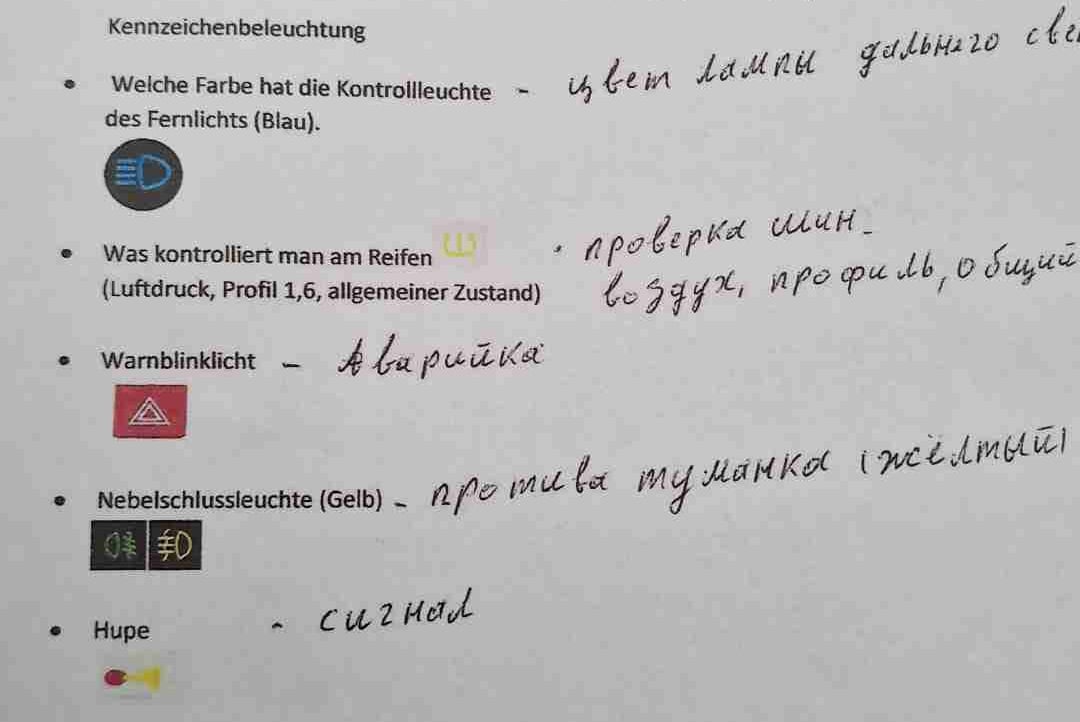 Kennzeichenbeleuchtung
• Welche Farbe hat die Kontrollleuchte - цвет лампы дальнего
des Fernlichts (Blau).
• Was kontrolliert man am Reifen · проверка шин -
(Luftdruck, Profil 1,6, allgemeiner Zustand) воздух, профиль, общий
• Warnblinklicht - Аварийка
• Nebelschlussleuchte (Gelb) - противa туманка (жёлтый)
• Hupe - сигнал